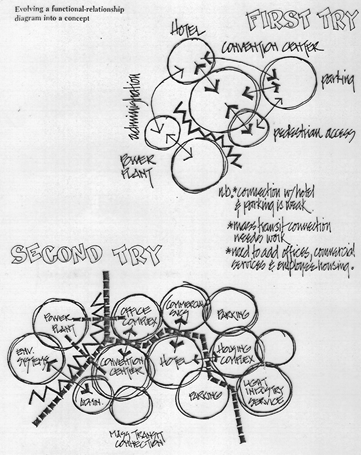 Evolving a functional-relationship
diagram into a concept
FIRST TRY
HOTEL
CONVENTION CENTER
parking
administration
pedestrian access
POWER
PLANT
n.b. *connection w/ hotel
& parking is weak
*mass transit connection
needs work
*need to add offices, commercial
services & employee housing.
SECOND TRY
POWER
PLANT
OFFICE
COMPLEX
COMMERCIAL
SVCS
PARKING
ENV.
SYSTEMS
CONVENTION
CENTER
HOTEL
HOUSING
COMPLEX
ADMIN.
PARKING
LIGHT
INDUSTRY
SERVICE
MASS TRANSIT
CONNECTION